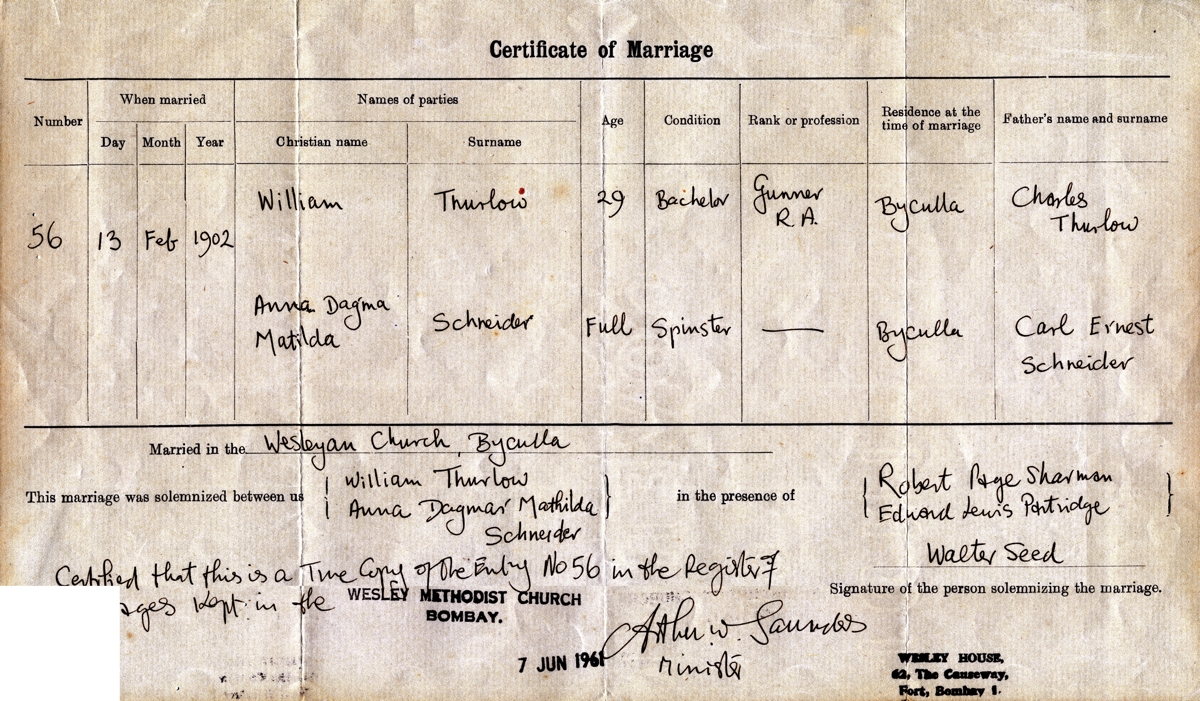 Certificate of Marriage
Number
When married
Names of parties
Age
Condition
Rank or profession
Residence at the time of marriage
Father's name and surname
Day Month Year
Christian name
Surname
56 13 Feb 1902
William Thurlow 29 Bachelor Gunner R.A. Byculla Charles Thurlow
Anna Dagma Matilda Schneider Full Spinster — Byculla Carl Ernest Schneider
Married in the Wesleyan Church, Byculla
This marriage was solemnized between us
William Thurlow
Anna Dagmar Mathilda
Schneider
in the presence of
Robert Page Sharman
Edward Lewis Partridge
Walter Seed
Signature of the person solemnizing the marriage.
Certified that this is a True Copy of the Entry No 56 in the Register of
ages kept in the WESLEY METHODIST CHURCH
BOMBAY.
7 JUN 1961
Arthur W. Saunders
Minister
WESLEY HOUSE,
62, The Causeway,
Fort, Bombay 1.